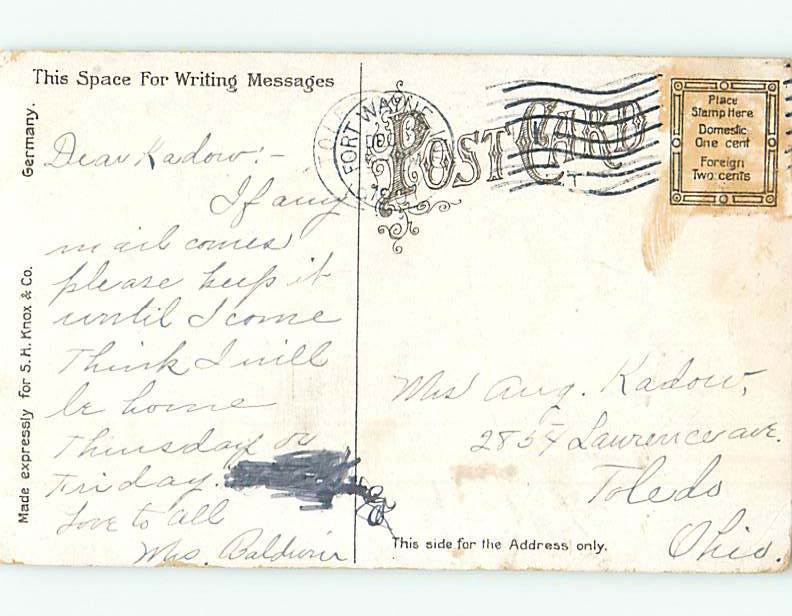 This Space For Writing Messages
Germany.
Made expressly for S. H. Knox & Co.
Dear Kadow:-
If any
mail comes
please keep it
until I come
Think I will
be home
Thursday or
Friday.
Love to all
Mrs. Baldwin
FORT WAYNE
POST CARD
Place
Stamp Here
Domestic
One cent
Foreign
Two cents
Mrs Aug. Kadow,
2854 Lawrence ave.
Toledo
Ohio.
This side for the Address only.